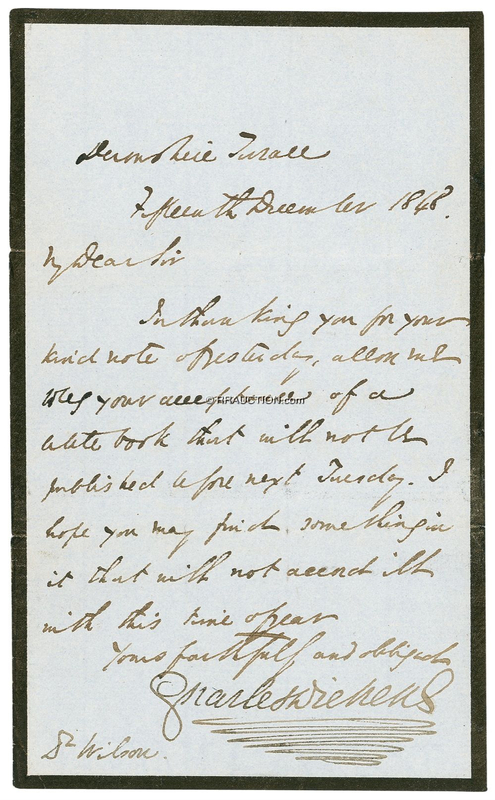 Devonshire Terrace
Fifteenth December 1848.
My Dear Sir
In thanking you for your
kind note of yesterday, allow me
to beg your acceptance of a
little book that will not be
published before next Tuesday. I
hope you may find something in
it that will not accord ill
with this time of year
Yours faithfully and obliged
Charles Dickens
Dr Wilson.
© RRAUCTION.com